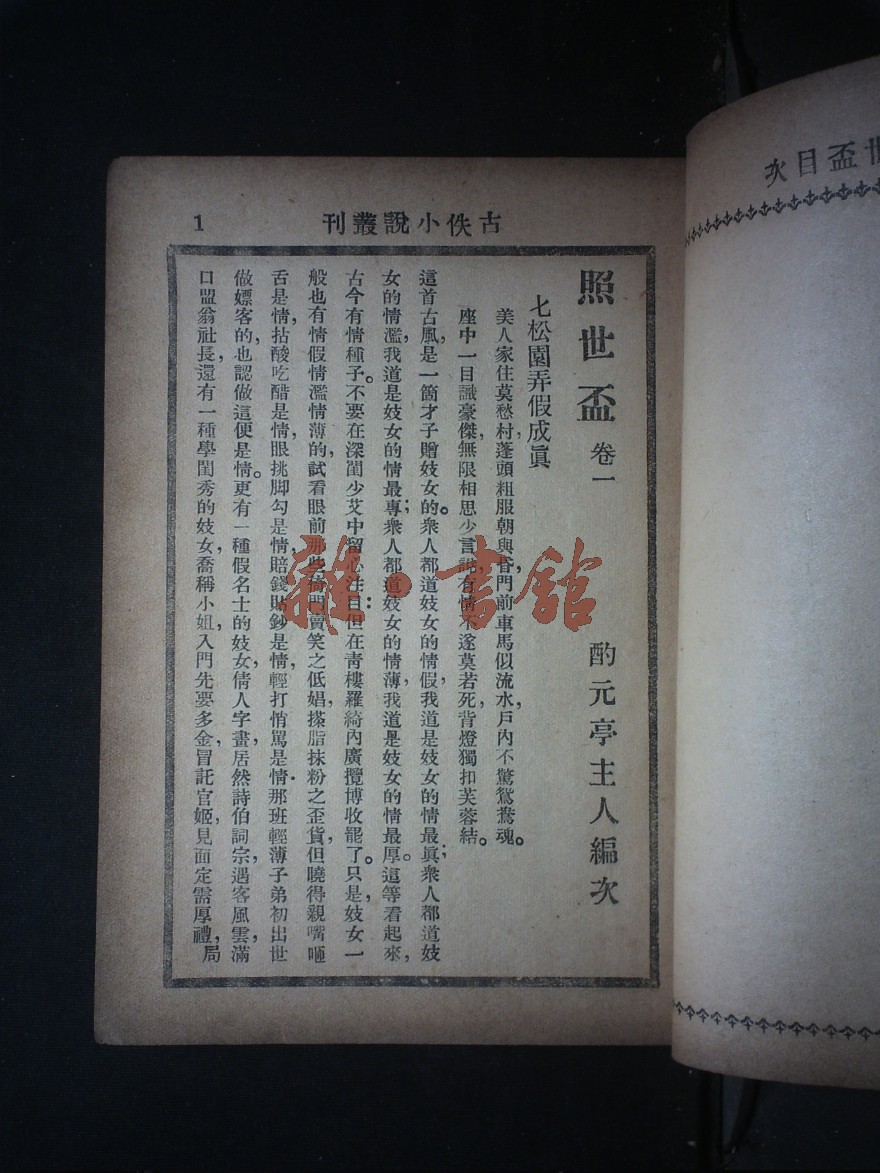 世盃目次
古佚小說叢刊
1
照世盃 卷一 酌元亭主人編次
七松園弄假成眞
美人家住莫愁村，蓬頭粗服朝與昏，門前車馬似流水，戶內不驚鴛鴦魂。
座中一目識豪傑，無限相思少言說，有情不遂莫若死，背燈獨扣芙蓉結。
這首古風，是一箇才子贈妓女的。衆人都道妓女的情假，我道是妓女的情最眞；衆人都道妓
女的情濫，我道是妓女的情最專；衆人都道妓女的情薄，我道是妓女的情最厚。這等看起來，
古今有情種子。不要在深閨少艾中留心注目：但在青樓羅綺內廣攬博收罷了。只是妓女一
般也有情假情濫情薄的，試看眼前那些倚門賣笑之低娼，搽脂抹粉之歪貨，但曉得親嘴咂
舌是情，拈酸吃醋是情，眼挑脚勾是情，賠錢貼鈔是情，輕打悄罵是情．那班輕薄子弟初出世
做嫖客的，也認做這便是情。更有一種假名士的妓女，倩人字畫，居然詩伯詞宗，遇客風雲，滿
口盟翁社長，還有一種學閨秀的妓女，喬稱小姐，入門先要多金，冒託官姬，見面定需厚禮，局
雜·書館